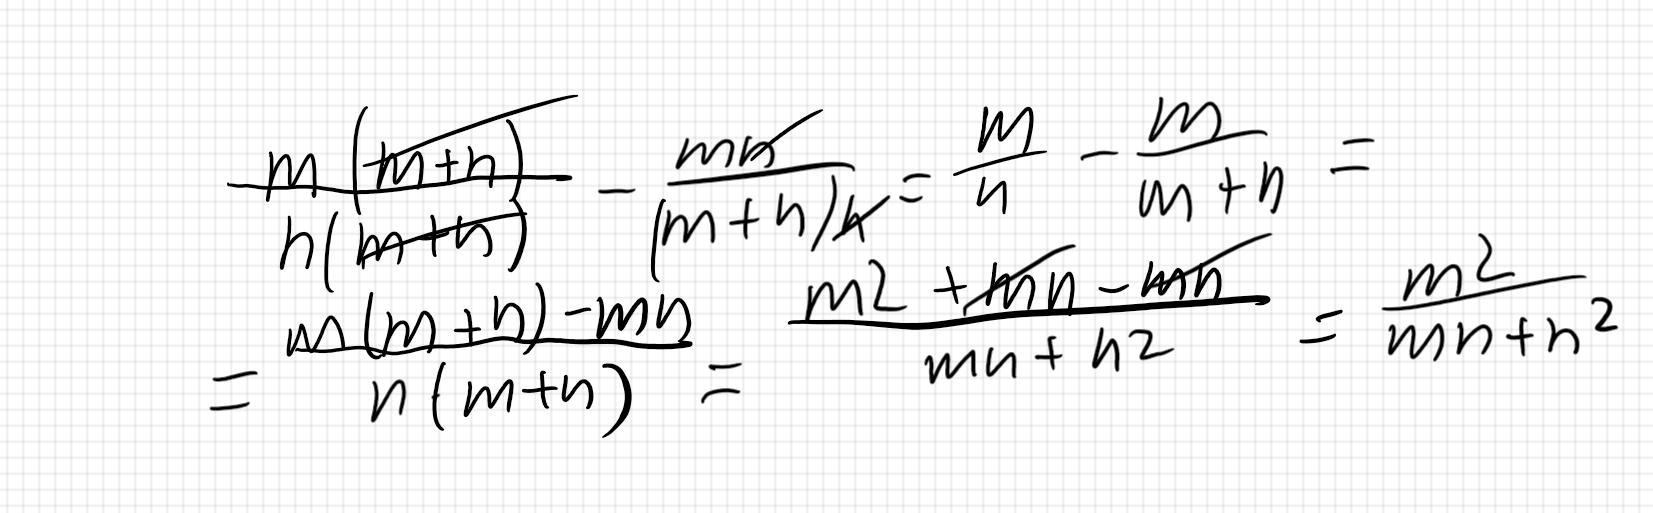 m(m+n)/n(m+n) - mn/(m+n)n = m/n - m/(m+n) =
= (m(m+n)-mn)/n(m+n) = (m²+mn-mn)/(mn+n²) = m²/(mn+n²)